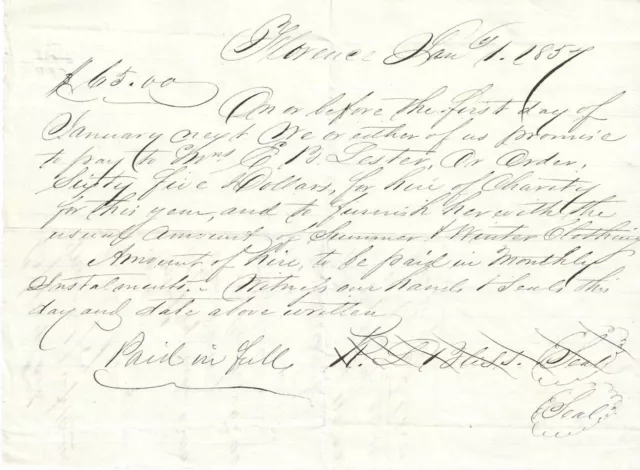 Florence Jany 1. 1857
$65.00
On or before the first day of
January next We or either of us promise
to pay to Mrs E B Lester, Or Order,
Sixty five Dollars, for hire of Charity
for this year, and to furnish her with the
usual Amount of Summer & Winter Clothing
Amount of hire, to be paid in monthly
Instalments. Witness our hands & Seals this
day and date above written
Paid in full
Bliss. Seal
Seal